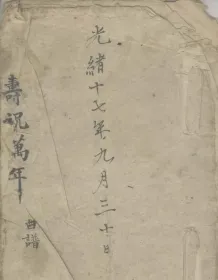 光緒十七年九月三十日
壽祝萬年
曲譜